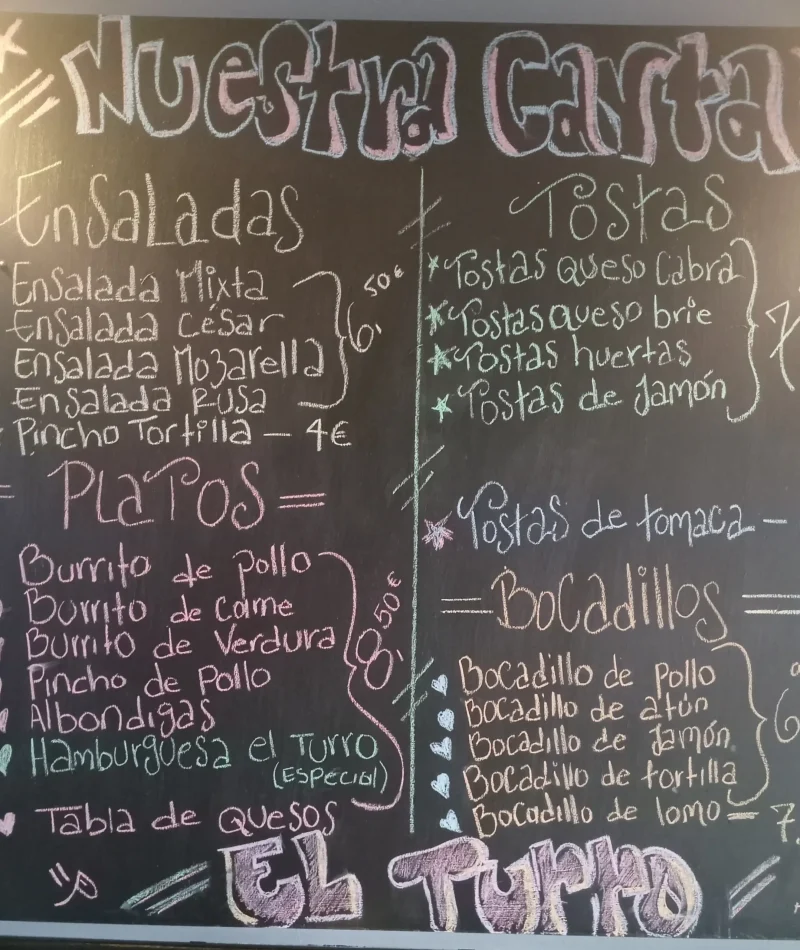 Nuestra Carta
Ensaladas
Ensalada Mixta
Ensalada César
Ensalada Mozarella
Ensalada Rusa
6,50€
Pincho Tortilla — 4€
= Platos =
Burrito de pollo
Burrito de carne
Burrito de Verdura
Pincho de pollo
Albondigas
Hamburguesa el Turro
(Especial)
8,50€
Tabla de quesos
Tostas
Tostas queso Cabra
Tostas queso brie
Tostas huertas
Tostas de Jamón
7
Tostas de tomaca –
= Bocadillos =
Bocadillo de pollo
Bocadillo de atún
Bocadillo de Jamón
Bocadillo de tortilla
6
Bocadillo de lomo = 7.
El Turro